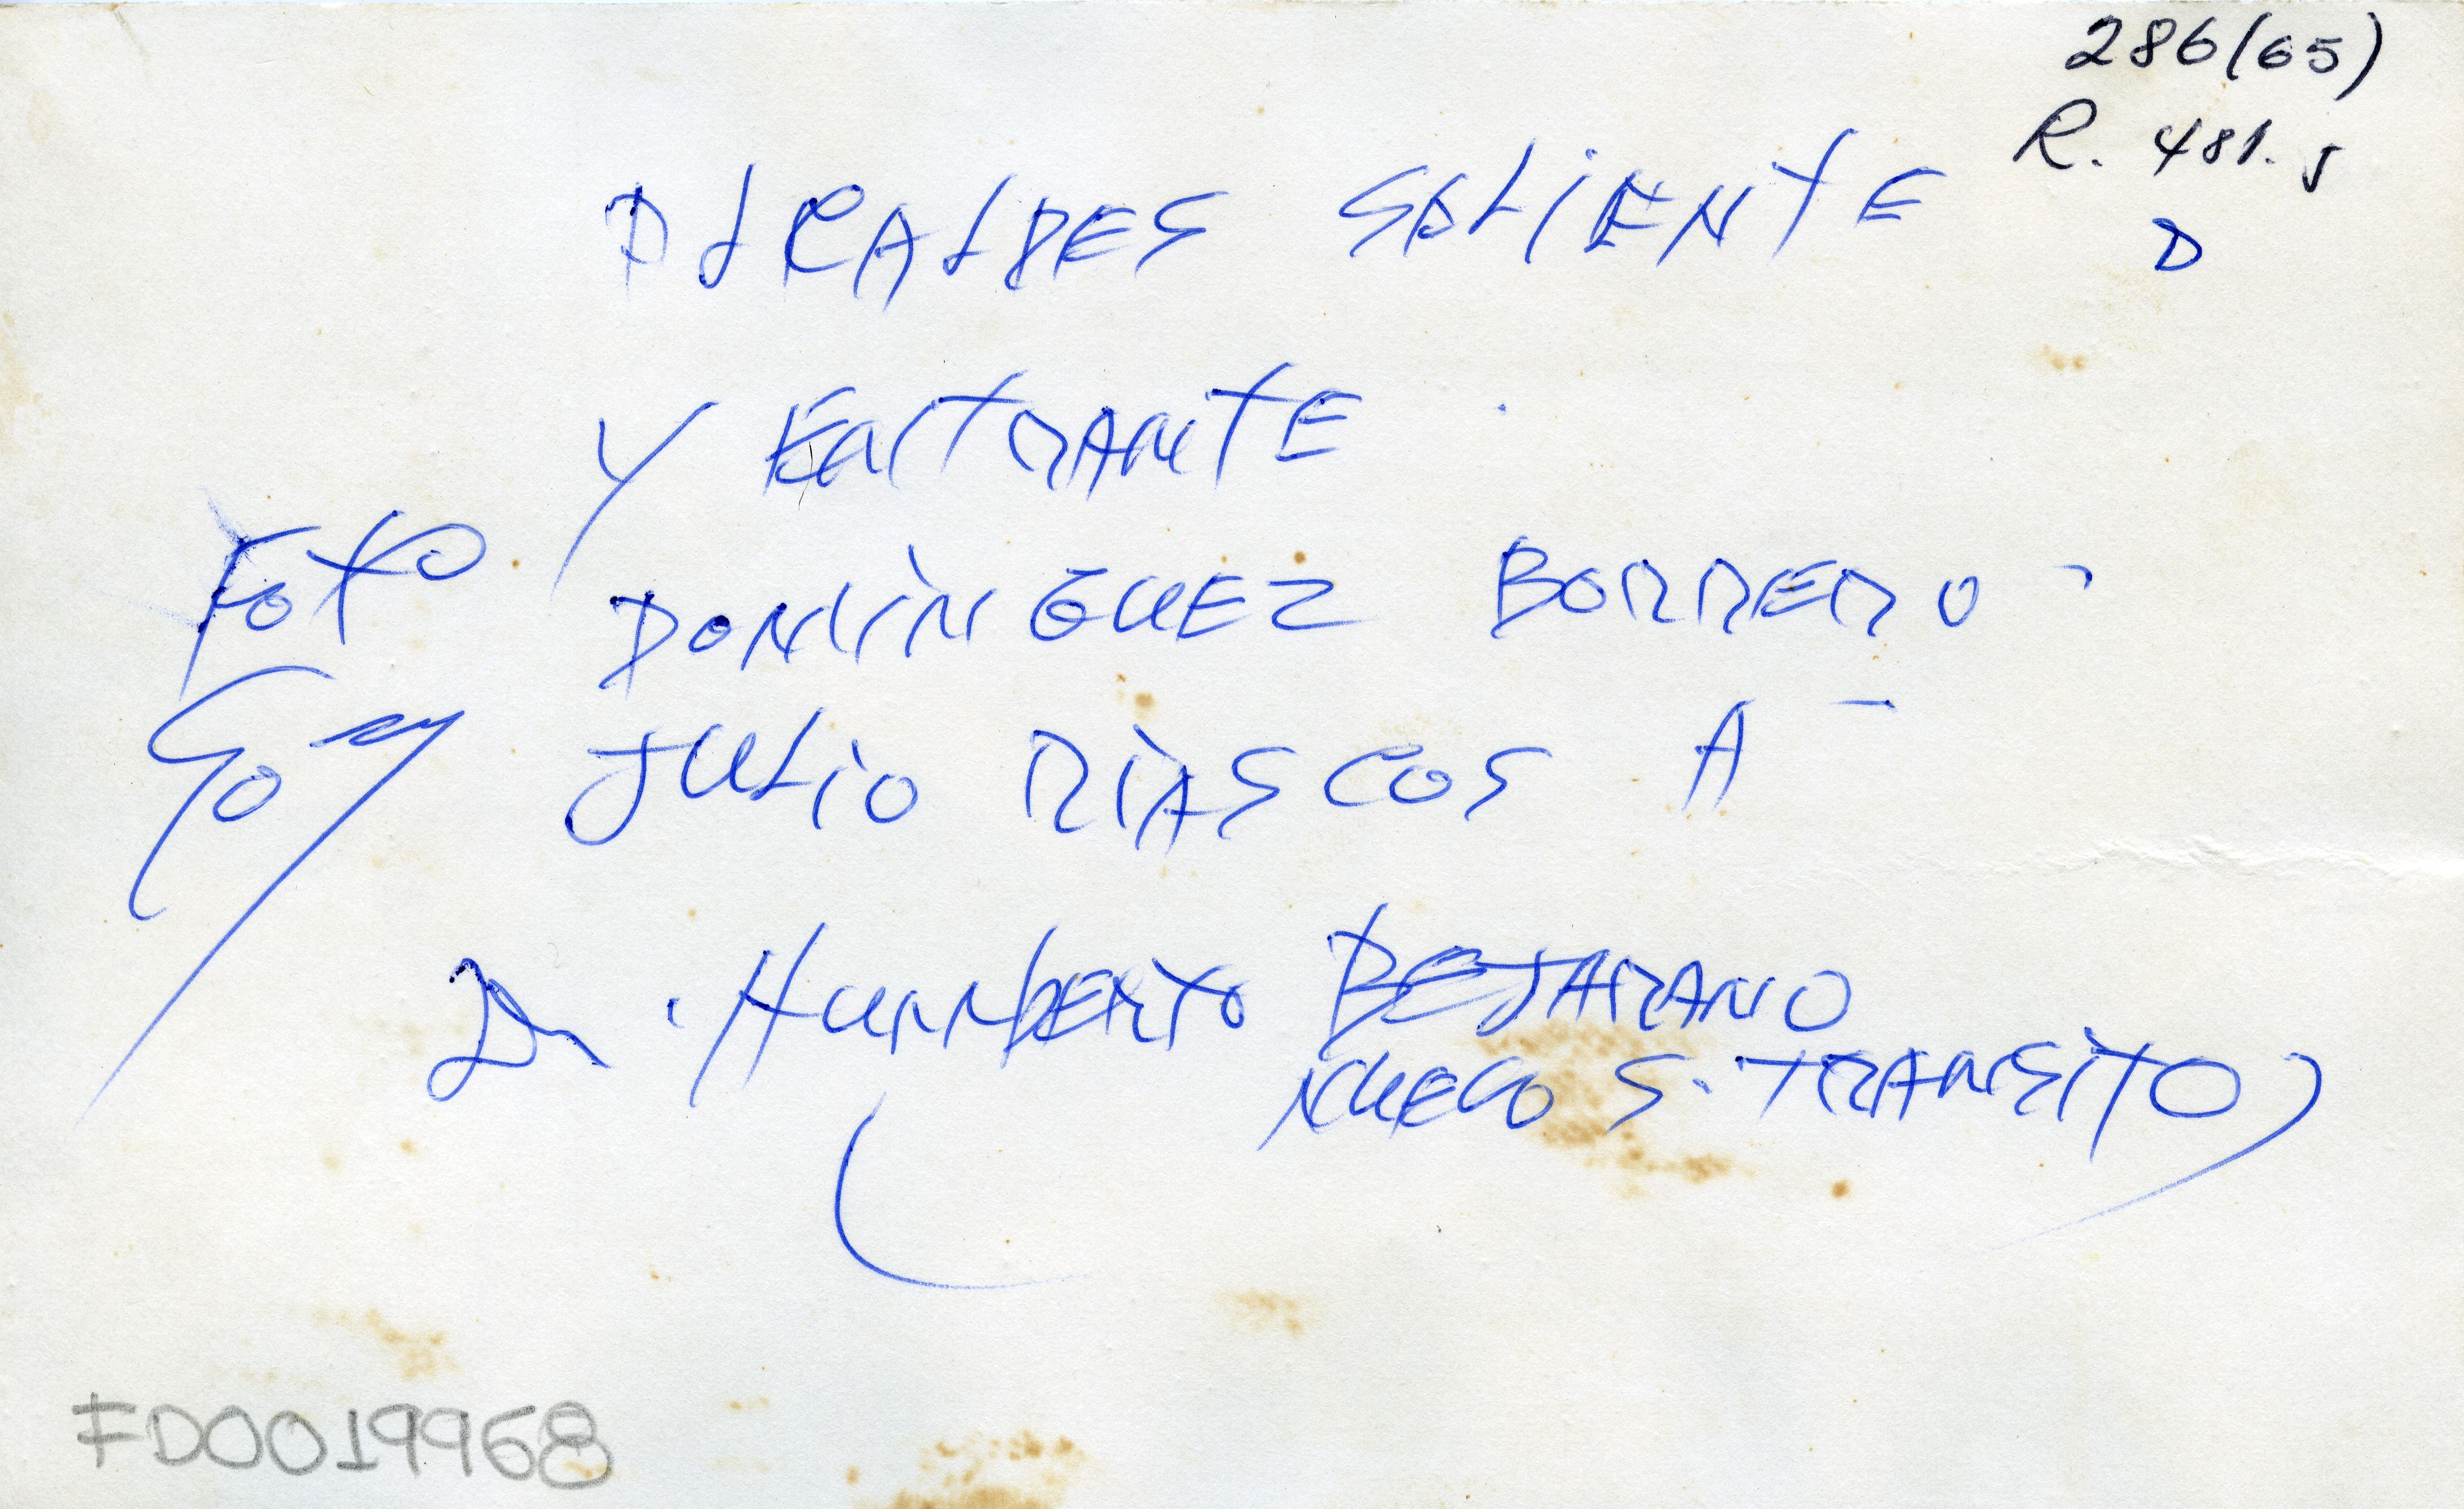 286(65)
R. 481. J
D
ALCALDES SALIENTE
Y ENTRANTE
FOTO
DOMINGUEZ BORRERO -
JULIO RIASCOS A -
Dr. HUMBERTO BEJARANO
NUEVO S. TRANSITO
FD0019968